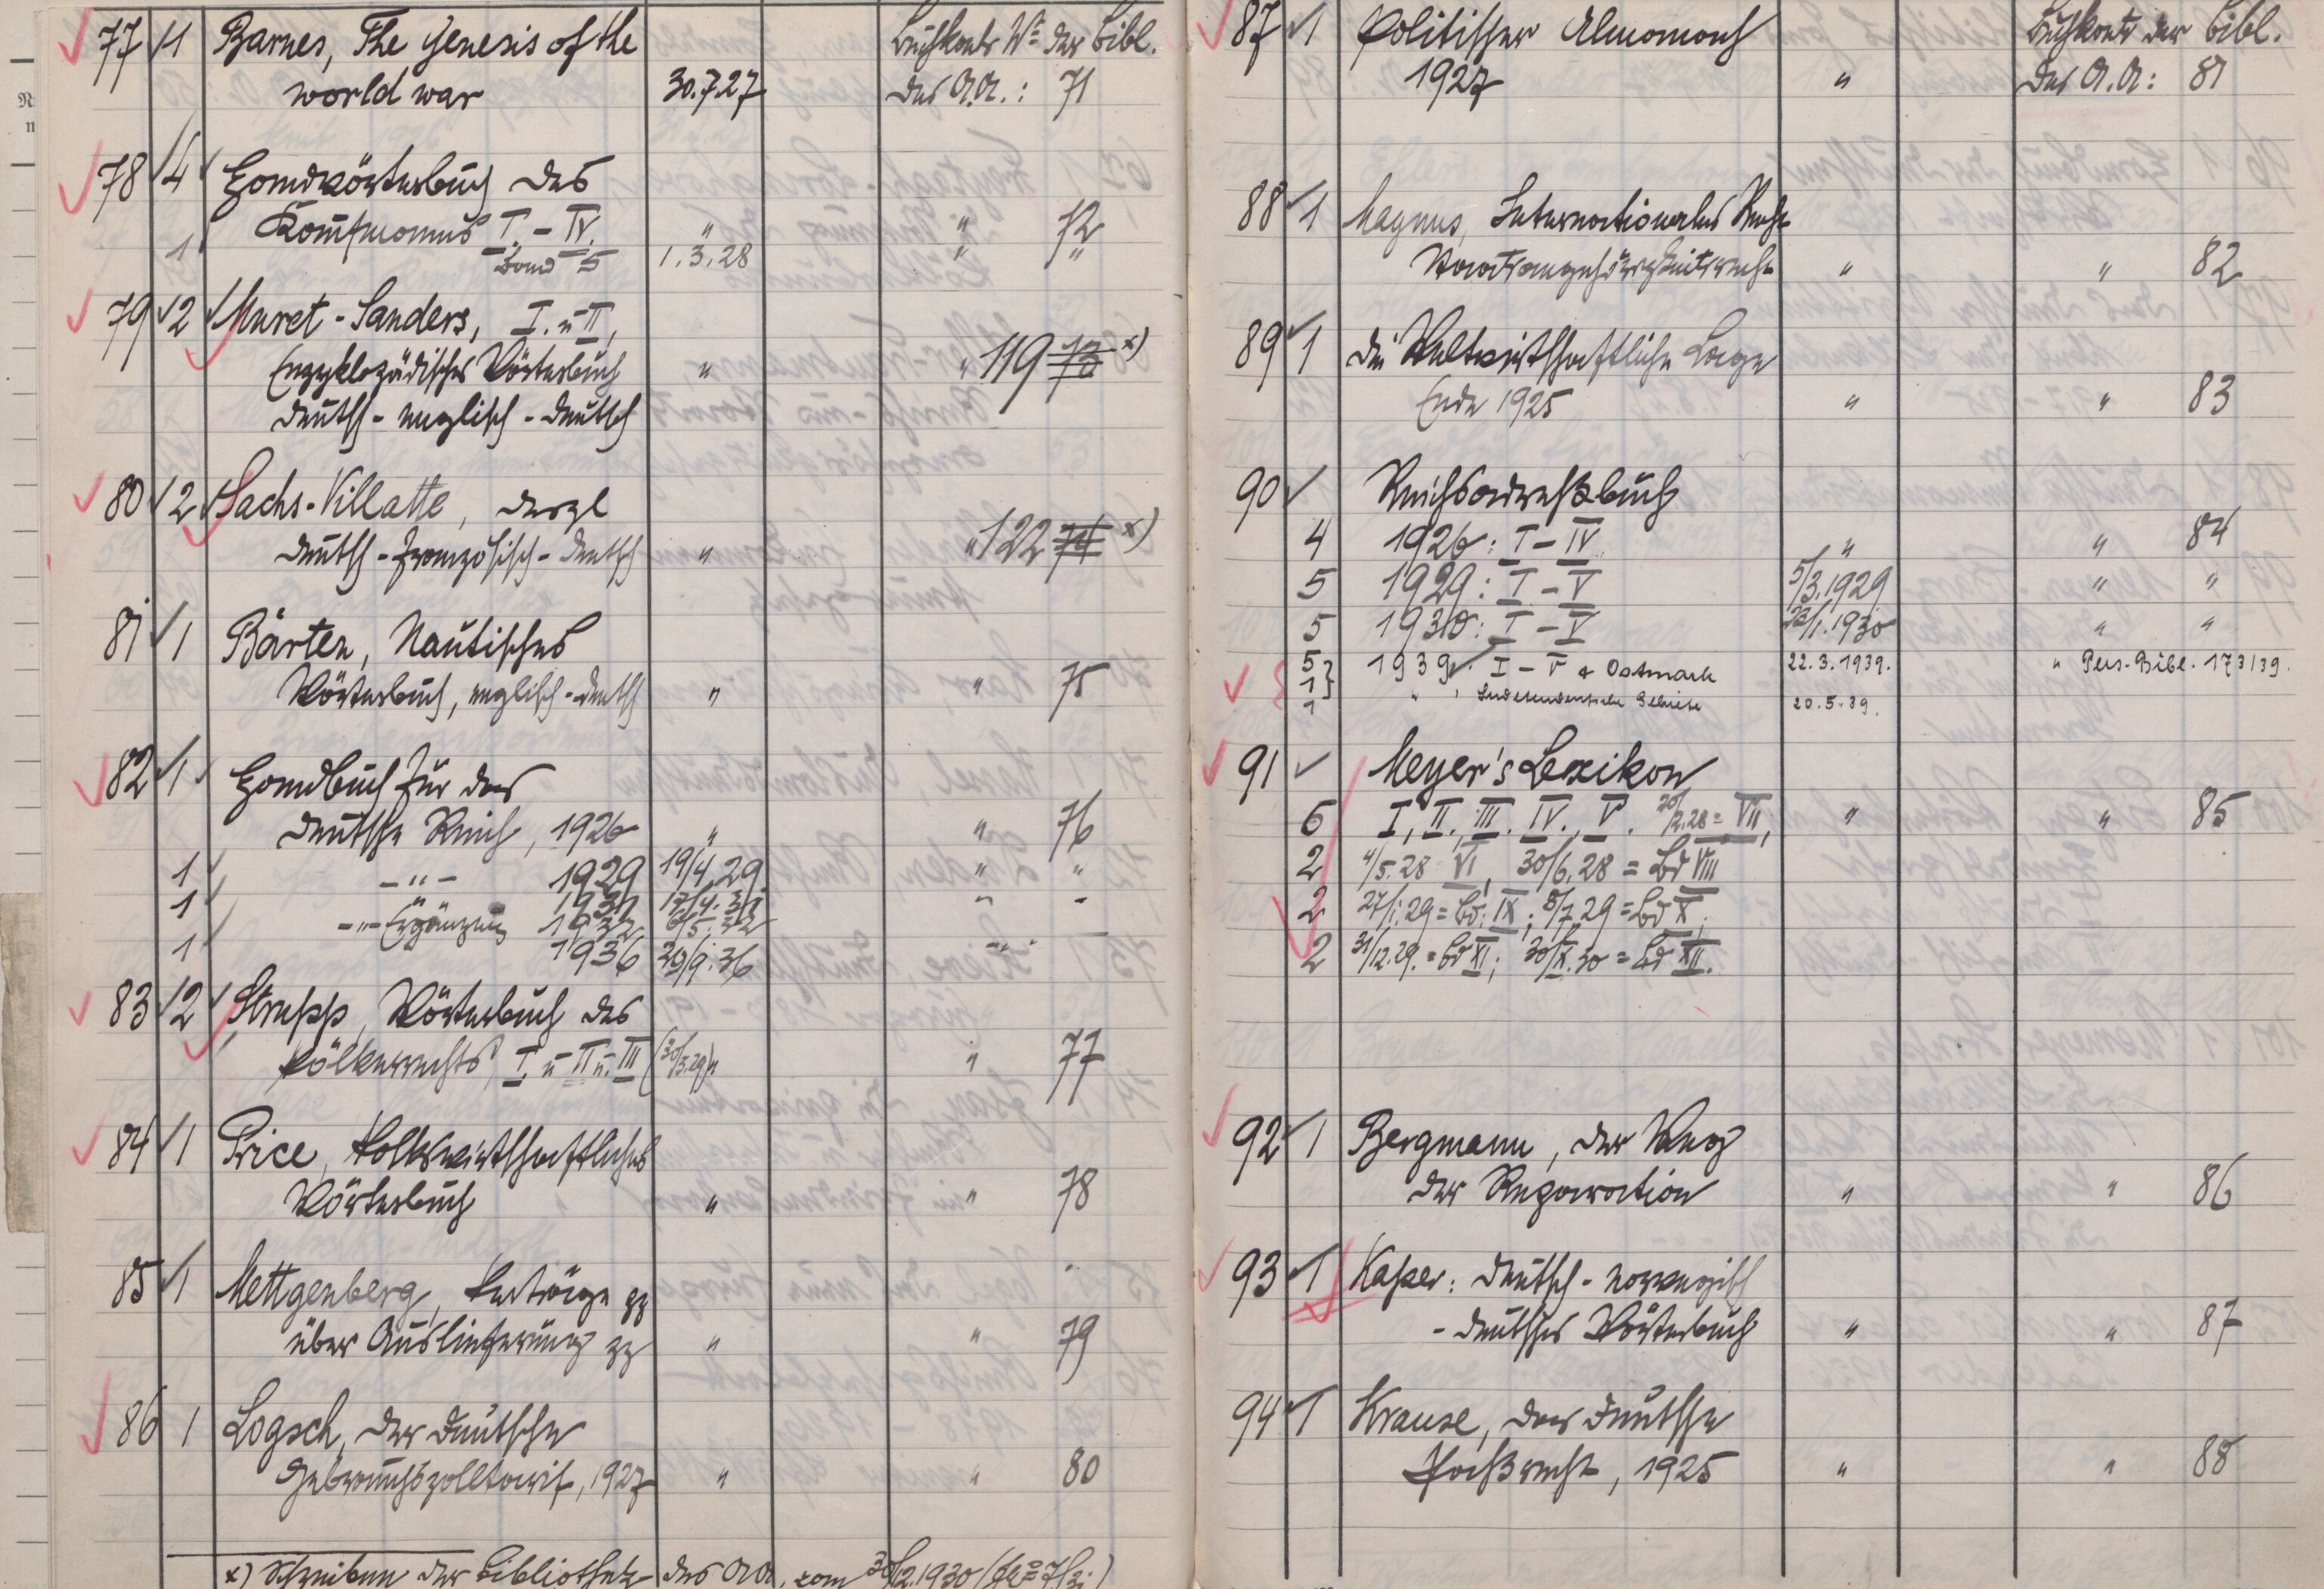 77 1 Barnes, The genesis of the Buchkonto No der Bibl.
world war 30.7.27 des A.A.: 71
78 4 Handwörterbuch des
Kaufmanns I.-IV. " " 72
1 Band 5 1.3.28 " "
79 2 Muret-Sanders, I. u II,
Enzyklopädisches Wörterbuch " " 119 73 x)
deutsch-englisch-deutsch
80 2 Sachs-Villatte, dergl
deutsch-französisch-deutsch " " 122 74 x)
81 1 Bärten, Nautisches
Wörterbuch, englisch-deutsch " " 75
82 1 Handbuch für das
deutsche Reich, 1926 " " 76
1 -"- 1929 19/4.29 " "
1 " 1931 17/4.31 " -
-"- Ergänzung 1932 6/5.32
1 1936 29/9.36 -"- -
83 2 Strupp, Wörterbuch des
Völkerrechts I. u II u. III (30/3.29) " " 77
84 1 Price, Volkswirtschaftliches
Wörterbuch " " 78
85 1 Mettgenberg, Verträge pp
über Auslieferung pp " " 79
86 1 Logsch, der deutsche
Gebrauchszolltarif, 1927 " " 80
x) Schreiben der Bibliothek des AA. vom 30/12.1930
87 1 Politischer Almanach Buchkonto der Bibl.
1927 " des A.A: 81
88 1 Magnus, Internationales Recht
Staatsangehörigkeitsrecht " " 82
89 1 die Weltwirtschaftliche Lage
Ende 1925 " " 83
90 Reichsadreßbuch
4 1926: I-IV " " 84
5 1929: I-V 5/3.1929 " "
5 1930: I-V 22/1.1930 " "
5 1939: I-V & Ostmark 22.3.1939. " Pers-Bibl. 173/39.
1
1 " , Sudetendeutsche Gebiete 20.5.39.
91 Meyer's Lexikon
6 I, II. III. IV., V. 20/2.28 = VII, " " 85
2 4/5.28 VI, 30/6.28 = Bd VIII
2 27/1.29 = Bd. IX; 8/7.29 = Bd X,
2 31/12.29. = Bd XI; 30/X.30 = Bd XII.
92 1 Bergmann, der Weg
der Reparation " " 86
93 1 Kaper: deutsch-norwegisch
-deutsches Wörterbuch " " 87
94 1 Krause, das deutsche
Paßrecht, 1925 " " 88